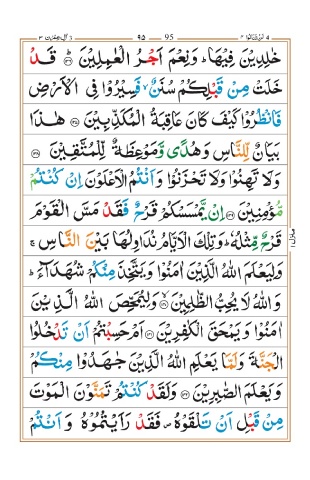 لن تنالوا ٤ ٩٥ 95 اٰل عمرٰن ٣
خٰلِدِيْنَ فِيْهَا ؕ وَنِعْمَ اَجْرُ الْعٰمِلِيْنَ ؕ﴿۱۳۶﴾ قَدْ
خَلَتْ مِنْ قَبْلِكُمْ سُنَنٌ ۙ فَسِيْرُوْا فِى الْاَرْضِ
فَانْظُرُوْا كَيْفَ كَانَ عَاقِبَةُ الْمُكَذِّبِيْنَ ﴿۱۳۷﴾ هٰذَا
بَيَانٌ لِّلنَّاسِ وَهُدًى وَّمَوْعِظَةٌ لِّلْمُتَّقِيْنَ ﴿۱۳۸﴾
وَلَا تَهِنُوْا وَلَا تَحْزَنُوْا وَاَنْتُمُ الْاَعْلَوْنَ اِنْ كُنْتُمْ
مُّؤْمِنِيْنَ ﴿۱۳۹﴾ اِنْ يَّمْسَسْكُمْ قَرْحٌ فَقَدْ مَسَّ الْقَوْمَ
قَرْحٌ مِّثْلُهٗ ؕ وَتِلْكَ الْاَيَّامُ نُدَاوِلُهَا بَيْنَ النَّاسِ ۚ
وَلِيَعْلَمَ اللّٰهُ الَّذِيْنَ اٰمَنُوْا وَيَتَّخِذَ مِنْكُمْ شُهَدَآءَ ؕ
وَاللّٰهُ لَا يُحِبُّ الظّٰلِمِيْنَ ۙ﴿۱۴۰﴾ وَلِيُمَحِّصَ اللّٰهُ الَّذِيْنَ
اٰمَنُوْا وَيَمْحَقَ الْكٰفِرِيْنَ ﴿۱۴۱﴾ اَمْ حَسِبْتُمْ اَنْ تَدْخُلُوا
الْجَنَّةَ وَلَمَّا يَعْلَمِ اللّٰهُ الَّذِيْنَ جٰهَدُوْا مِنْكُمْ
وَيَعْلَمَ الصّٰبِرِيْنَ ﴿۱۴۲﴾ وَلَقَدْ كُنْتُمْ تَمَنَّوْنَ الْمَوْتَ
مِنْ قَبْلِ اَنْ تَلْقَوْهُ ۪ فَقَدْ رَاَيْتُمُوْهُ وَاَنْتُمْ
منزل ١